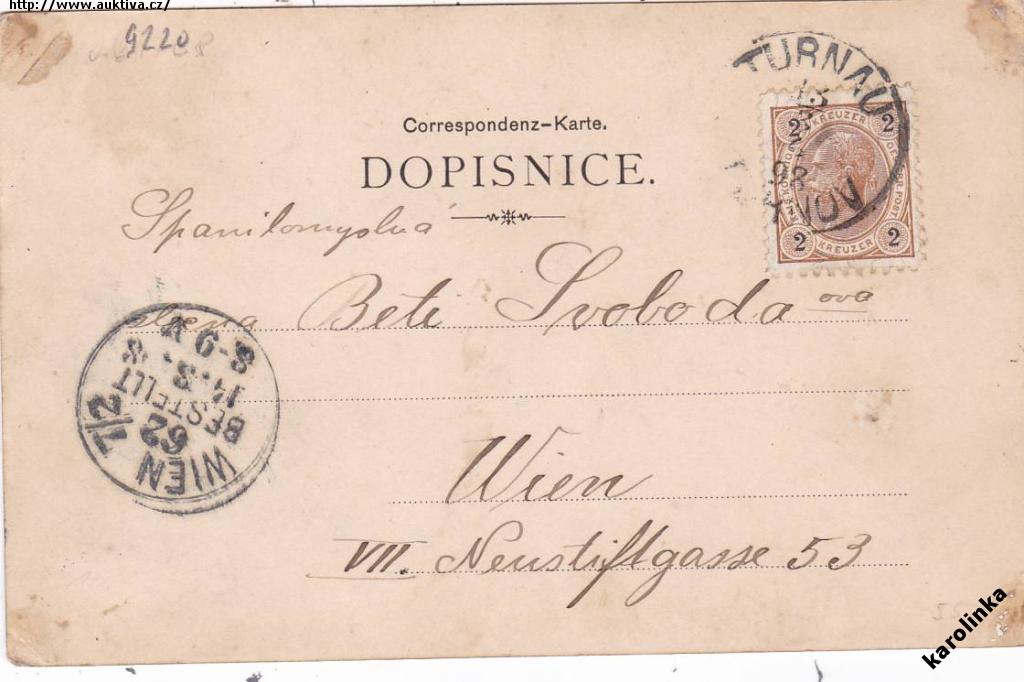 http://www.auktiva.cz/
9220
Correspondenz-Karte.
DOPISNICE.
TURNAU
13
98
2 KREUZER 2
2 KREUZER 2
Spanilomyslná
slečna Beti Svoboda ova
Wien
VII. Neustiftgasse 53
WIEN 7/2
62
BESTELLT
14.3.
8-9 V
karolinka